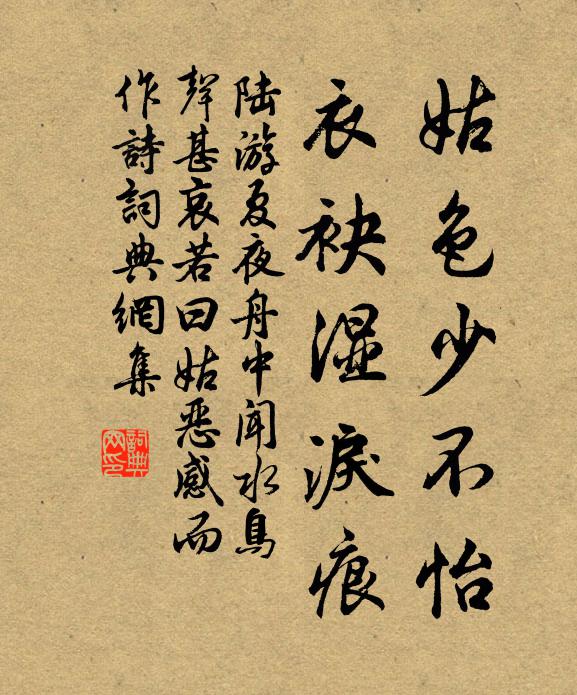 姑色少不怡
衣袂湿淚痕
陆游夏夜舟中闻水鳥
聲甚哀若曰姑恶感而
作詩詞典網集
詞典網印